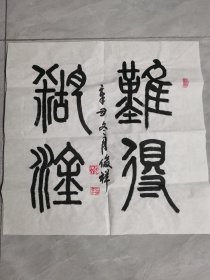 難得
糊塗
辛丑冬月俊祥